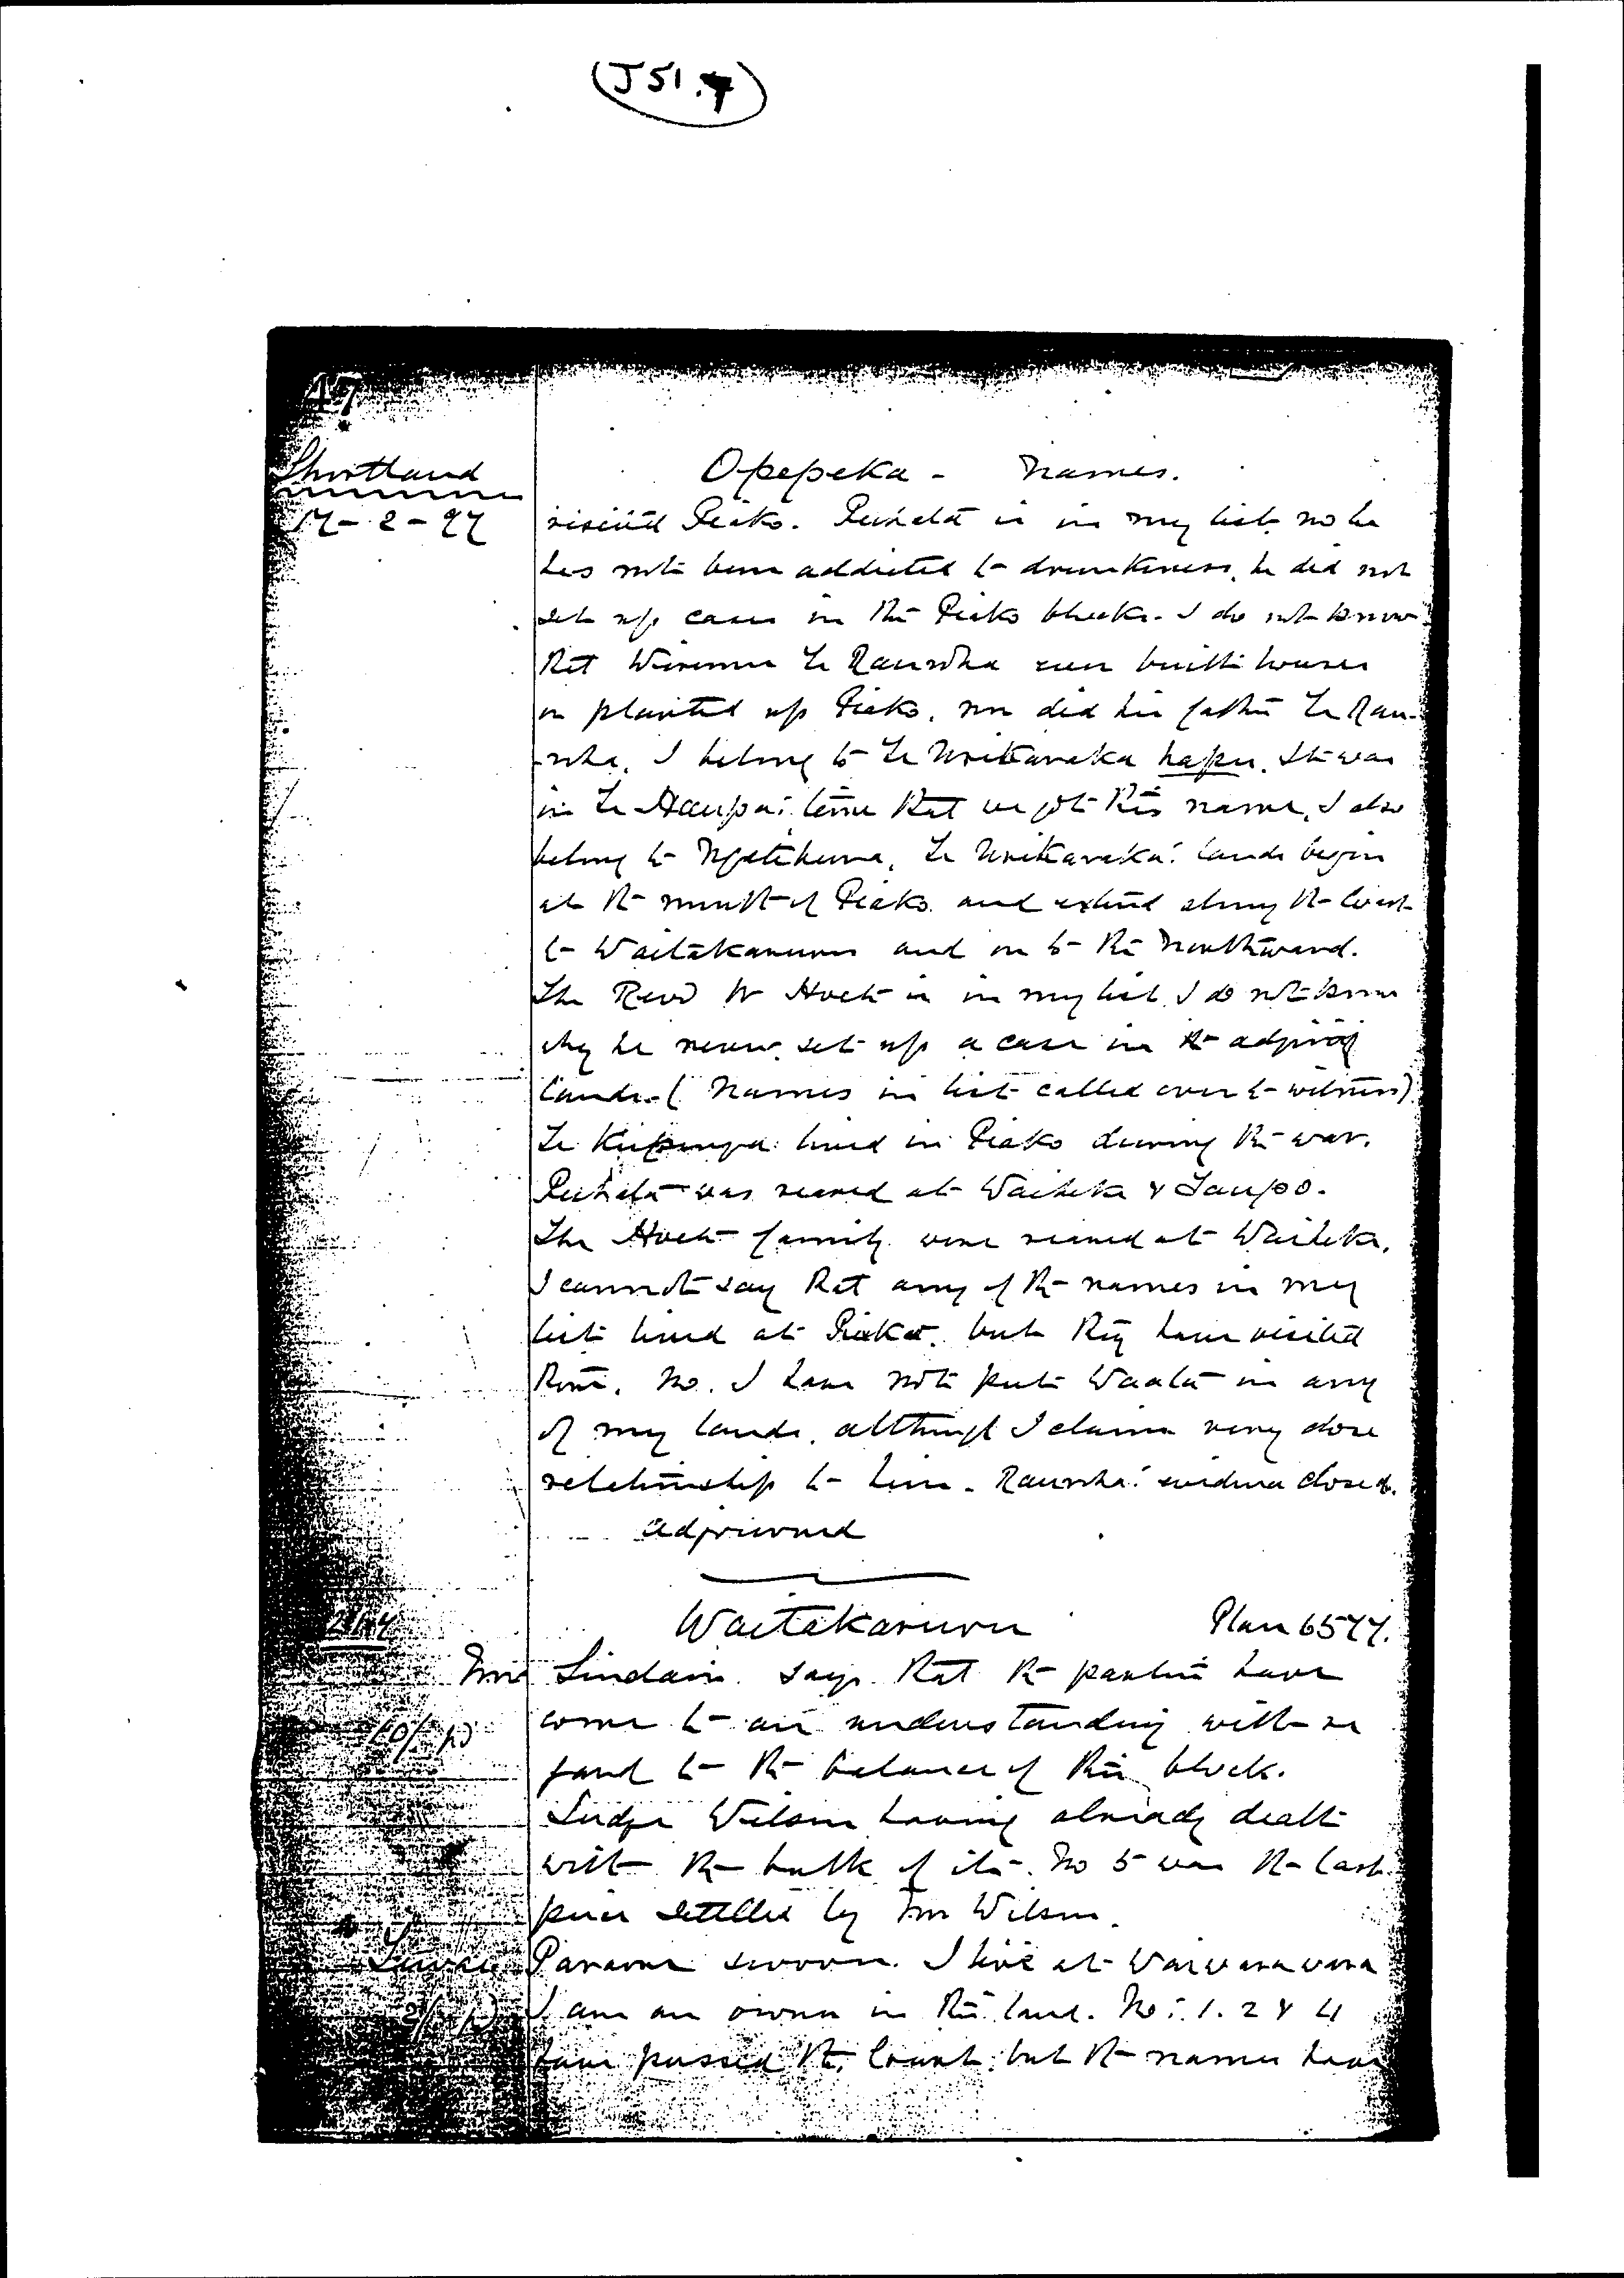 (J51.7)
47
Shortland
17-2-97
Opepeka - Names.
visited Piako. Pukeha is in my list no he
has not been addicted to drunkenness, he did not
set up cases in the Piako blocks. I do not know
that Wiremu Te Rauroha ever built houses
or planted up Piako, nor did his father Te Rau-
roha. I belong to Te Urikaraka hapu. It was
in Te Haupa's time that we got this name, I also
belong to Ngatihura. Te Urikaraka's lands begin
at the mouth of Piako and extend along the Coast
to Waitakaruru and on to the Northward.
The Revd W Hoete is in my list I do not know
why he never set up a case in the adjoing
lands. (Names in list called over to witness)
Te lived in Piako during the war.
was reared at Waiheke & Taupo.
The Hoete family were reared at Waiheke.
I cannot say that any of the names in my
list lived at Piako, but they have visited
there. No. I have not put Waata in any
of my lands, although I claim very close
relationship to him. Rauroha's evidence closed.
adjourned
Waitakaruru Plan 6577.
Mr says that the parties have
come to an understanding with re
gard to the balance of this block.
Judge Wilson having already dealt
with the bulk of it. No 5 was the last
piece settled by Mr Wilson.
Parama sworn. I live at Waiwarawara
I am an owner in this land. No: 1. 2 & 4
have passed the Court, but the names have